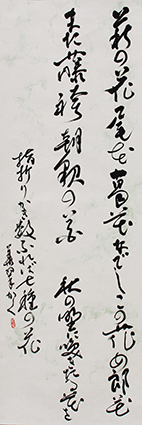 萩の花尾花葛花なでしこの花女郎花
また藤袴朝顔の花 秋の野に咲きたる花を
指折りかき数ふれば七種の花